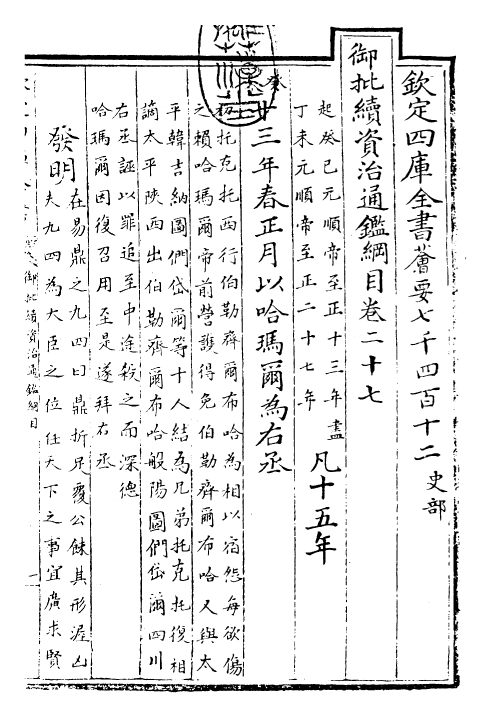 欽定四庫全書薈要七千四百十二 史部
御批續資治通鑑綱目卷二十七
起癸巳元順帝至正十三年盡
丁未元順帝至正二十七年
凡十五年
癸
十三年春正月以哈瑪爾為右丞
初托克托西行伯勒齊爾布哈為相以宿怨每欲傷
之賴哈瑪爾帝前營護得免伯勒齊爾布哈又與太
平韓吉納圖們岱爾等十人結為兄弟托克托復相
謫太平陝西出伯勒齊爾布哈般陽圖們岱爾四川
右丞誣以罪追至中途殺之而深德
哈瑪爾因復召用至是遂拜右丞
發明
在易鼎之九四曰鼎折足覆公餗其形渥凶
夫九四為大臣之位任天下之事宜廣求賢
御批續資治通鑑綱目
一